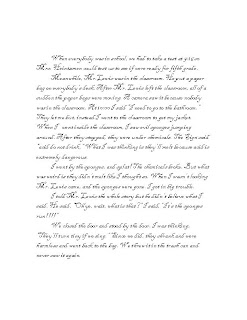 When everybody was in school, we had to take a test of gr
Mrs. Robinson could test us to see if we're ready for fifth grade.
Meanwhile, Mr. Louis was in the classroom. He put a paper
bag on everybody's desk. After Mr. Louis left the classroom, all of a
sudden the paper bags were moving. A camera saw it because nobody
was in the classroom. I said "I need to go to the bathroom."
They let me but, instead I went to the classroom to get my jacket.
When I went inside the classroom, I saw evil sponges jumping
around. After they stopped, they were under chemicals. The sign said
"said do not drink." What I was thinking is they'll melt because acid is
extremely dangerous.
I went by the sponges, and splat! The chemicals broke. But what
was weird is they didn't melt like I thought so. When I wasn't looking
Mr. Louis came, and the sponges were gone. I got in big trouble.
I told Mr. Louis the whole story but he didn't believe what I
said. He said, "Okay, wait, what is that?" I said, "It's the sponges
run!!!!"
We closed the door and stood by the door. I was thinking.
"They'll turn tiny if we sing." Since we did, they shrunk and were
harmless and went back to the bag. We threw it in the trash can and
never saw it again.